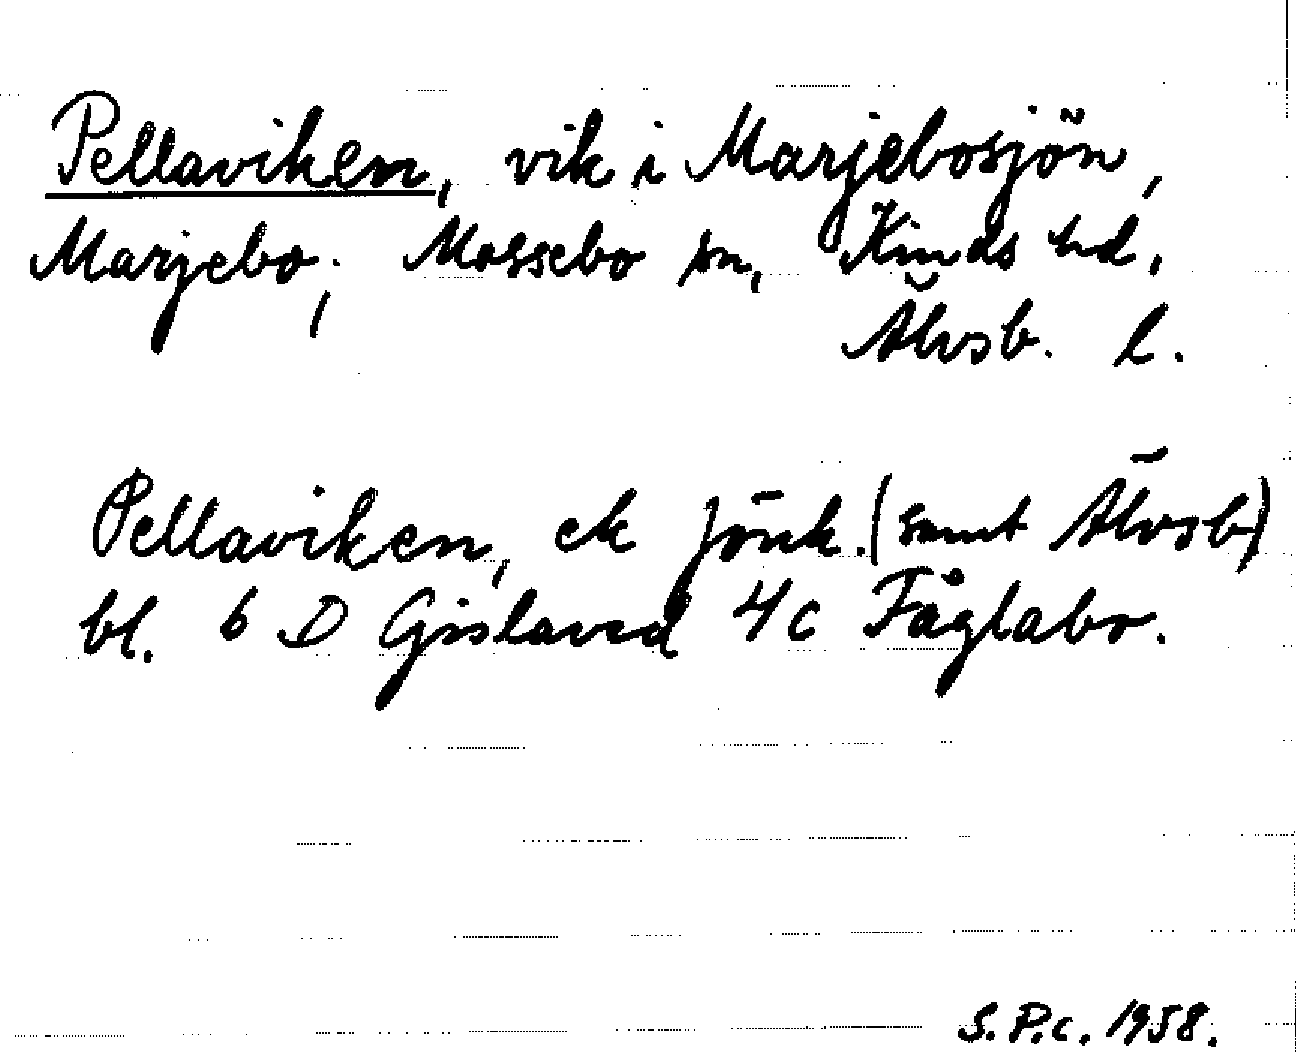 Pellaviken, vik i Marjebosjön,
Marjebo; Mossebo sn, Kinds hd,
Älvsb. l.
Pellaviken, ek Jönk. (samt Älvsb)
bl. 6 D Gislaved 4c Fåglabo.
S.P.c. 1958.